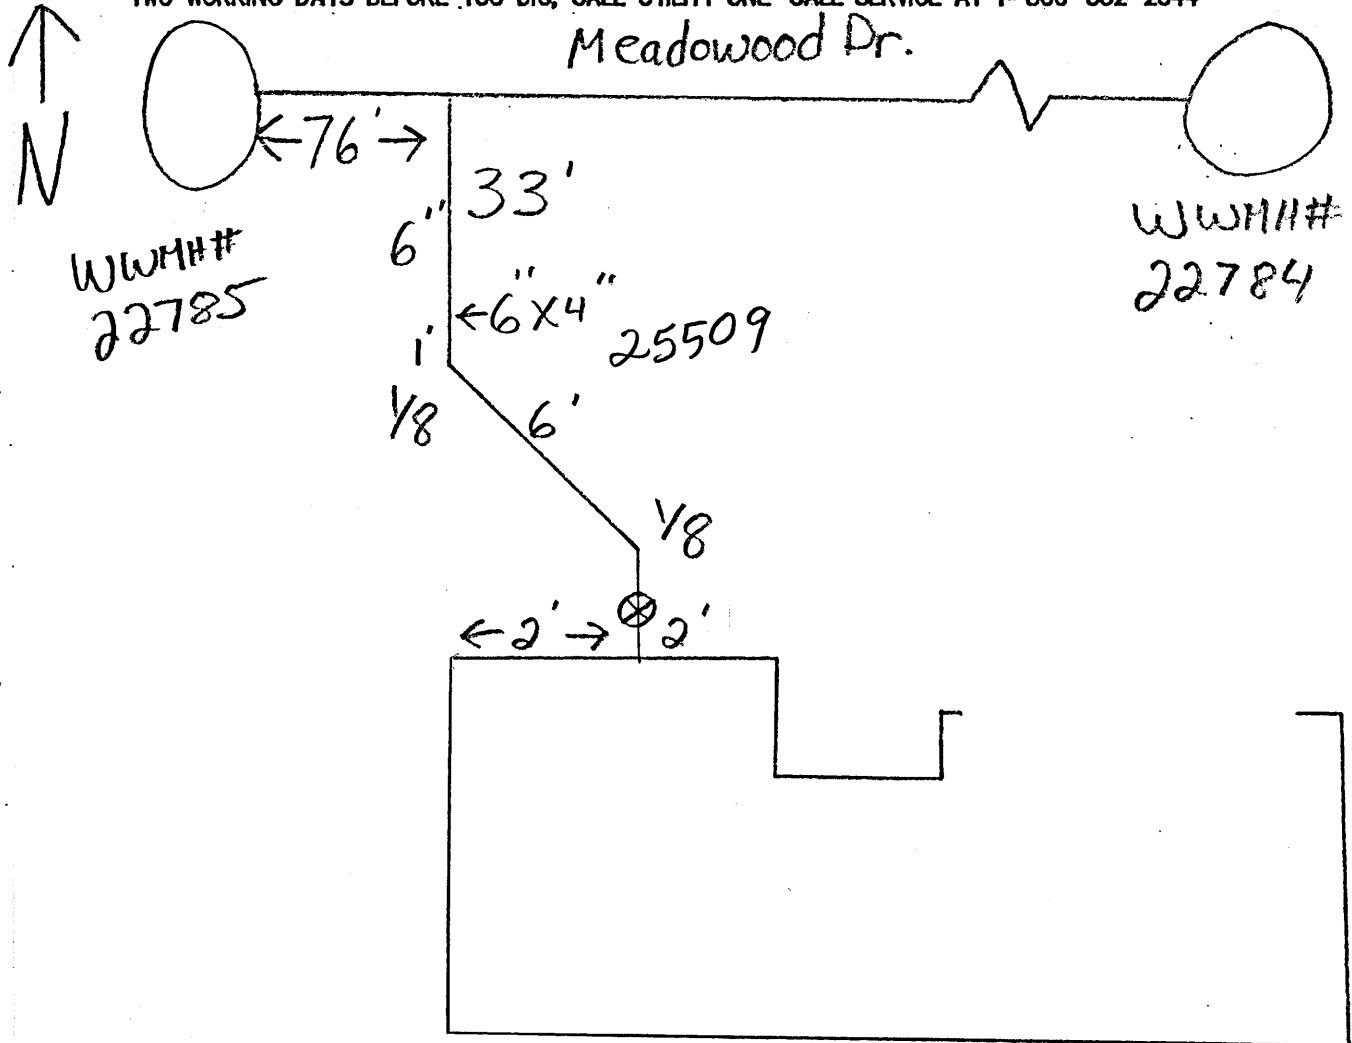 TWO WORKING DAYS BEFORE YOU DIG, CALL UTILITY ONE-CALL SERVICE AT 1-800-382-2544
Meadowood Dr.
N
←76'→
33'
6"
WWMH#
22785
WWMH#
22784
←6"X4"
25509
1'
1/8
6'
1/8
←2'→
2'